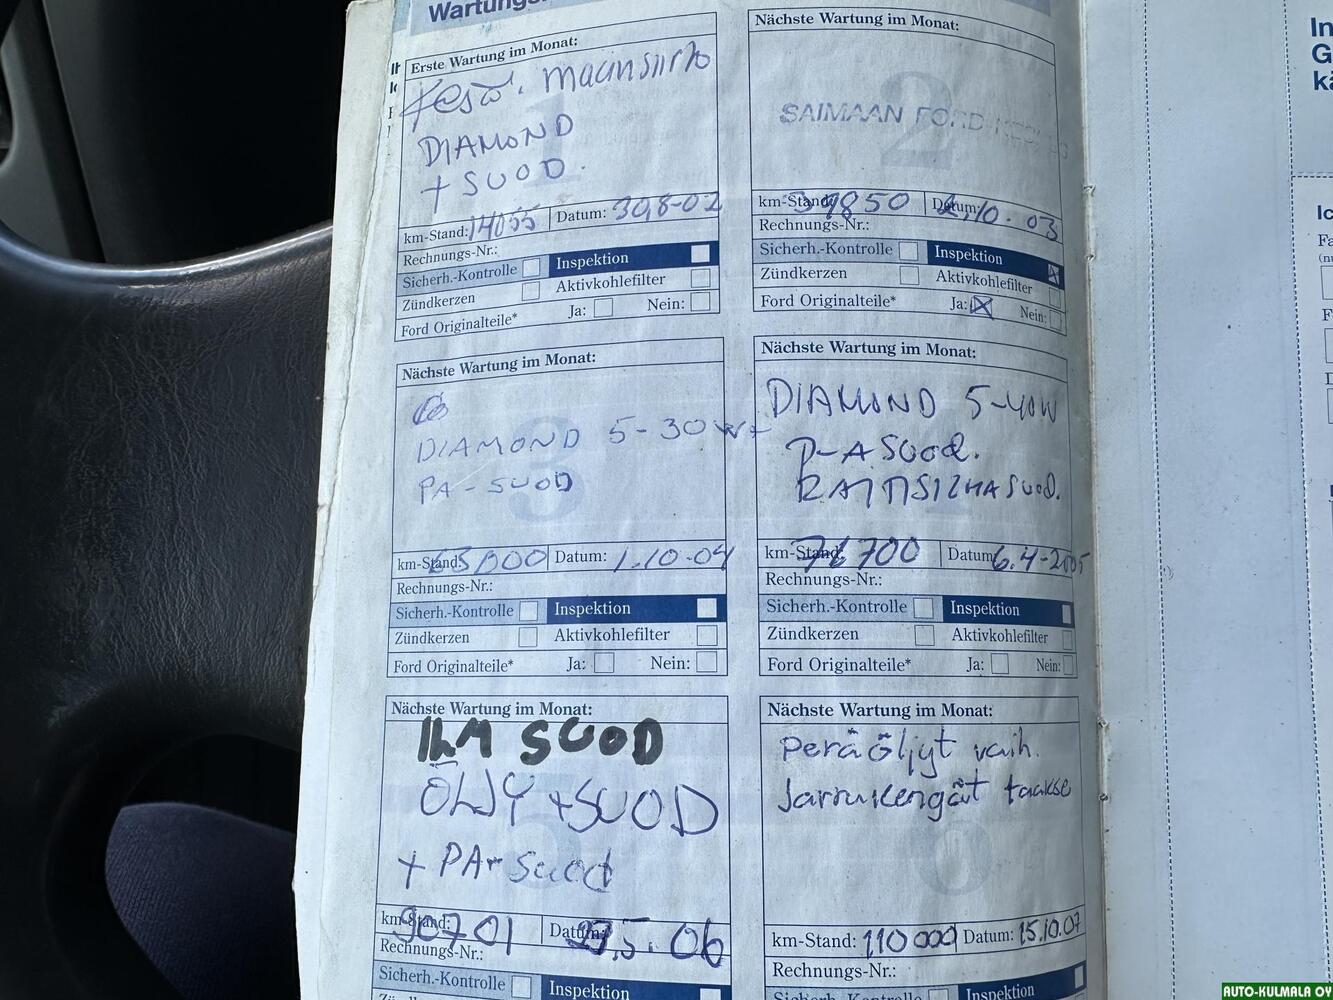 Wartungs
Erste Wartung im Monat:
1
DIAMOND
+ SUOD.
km-Stand: 14055 Datum: 30,8-02
Rechnungs-Nr.:
Sicherh.-Kontrolle Inspektion
Zündkerzen Aktivkohlefilter
Ford Originalteile* Ja: Nein:
Nächste Wartung im Monat:
2
SAIMAAN FORD
km-Stand: 39850 Datum: 10.03
Rechnungs-Nr.:
Sicherh.-Kontrolle Inspektion
Zündkerzen Aktivkohlefilter
Ford Originalteile* Ja: Nein:
Nächste Wartung im Monat:
3
DIAMOND 5-30W+
PA-SUOD
km-Stand: 63000 Datum: 1.10-04
Rechnungs-Nr.:
Sicherh.-Kontrolle Inspektion
Zündkerzen Aktivkohlefilter
Ford Originalteile* Ja: Nein:
Nächste Wartung im Monat:
DIAMOND 5-40W
P-A SUOD.
RAITISILMASUOD.
km-Stand: 76700 Datum: 6.4-2005
Rechnungs-Nr.:
Sicherh.-Kontrolle Inspektion
Zündkerzen Aktivkohlefilter
Ford Originalteile* Ja: Nein:
Nächste Wartung im Monat:
5
ILM SUOD
ÖLJY +SUOD
+ PA-Suod
km-Stand: 90701 Datum: 5.06
Rechnungs-Nr.:
Sicherh.-Kontrolle Inspektion
Nächste Wartung im Monat:
6
Peräöljyt vaih.
Jarrukengät taakse
km-Stand: 110000 Datum: 15.10.07
Rechnungs-Nr.:
Sicherh.-Kontrolle Inspektion
In
G
kä
AUTO-KULMALA OY